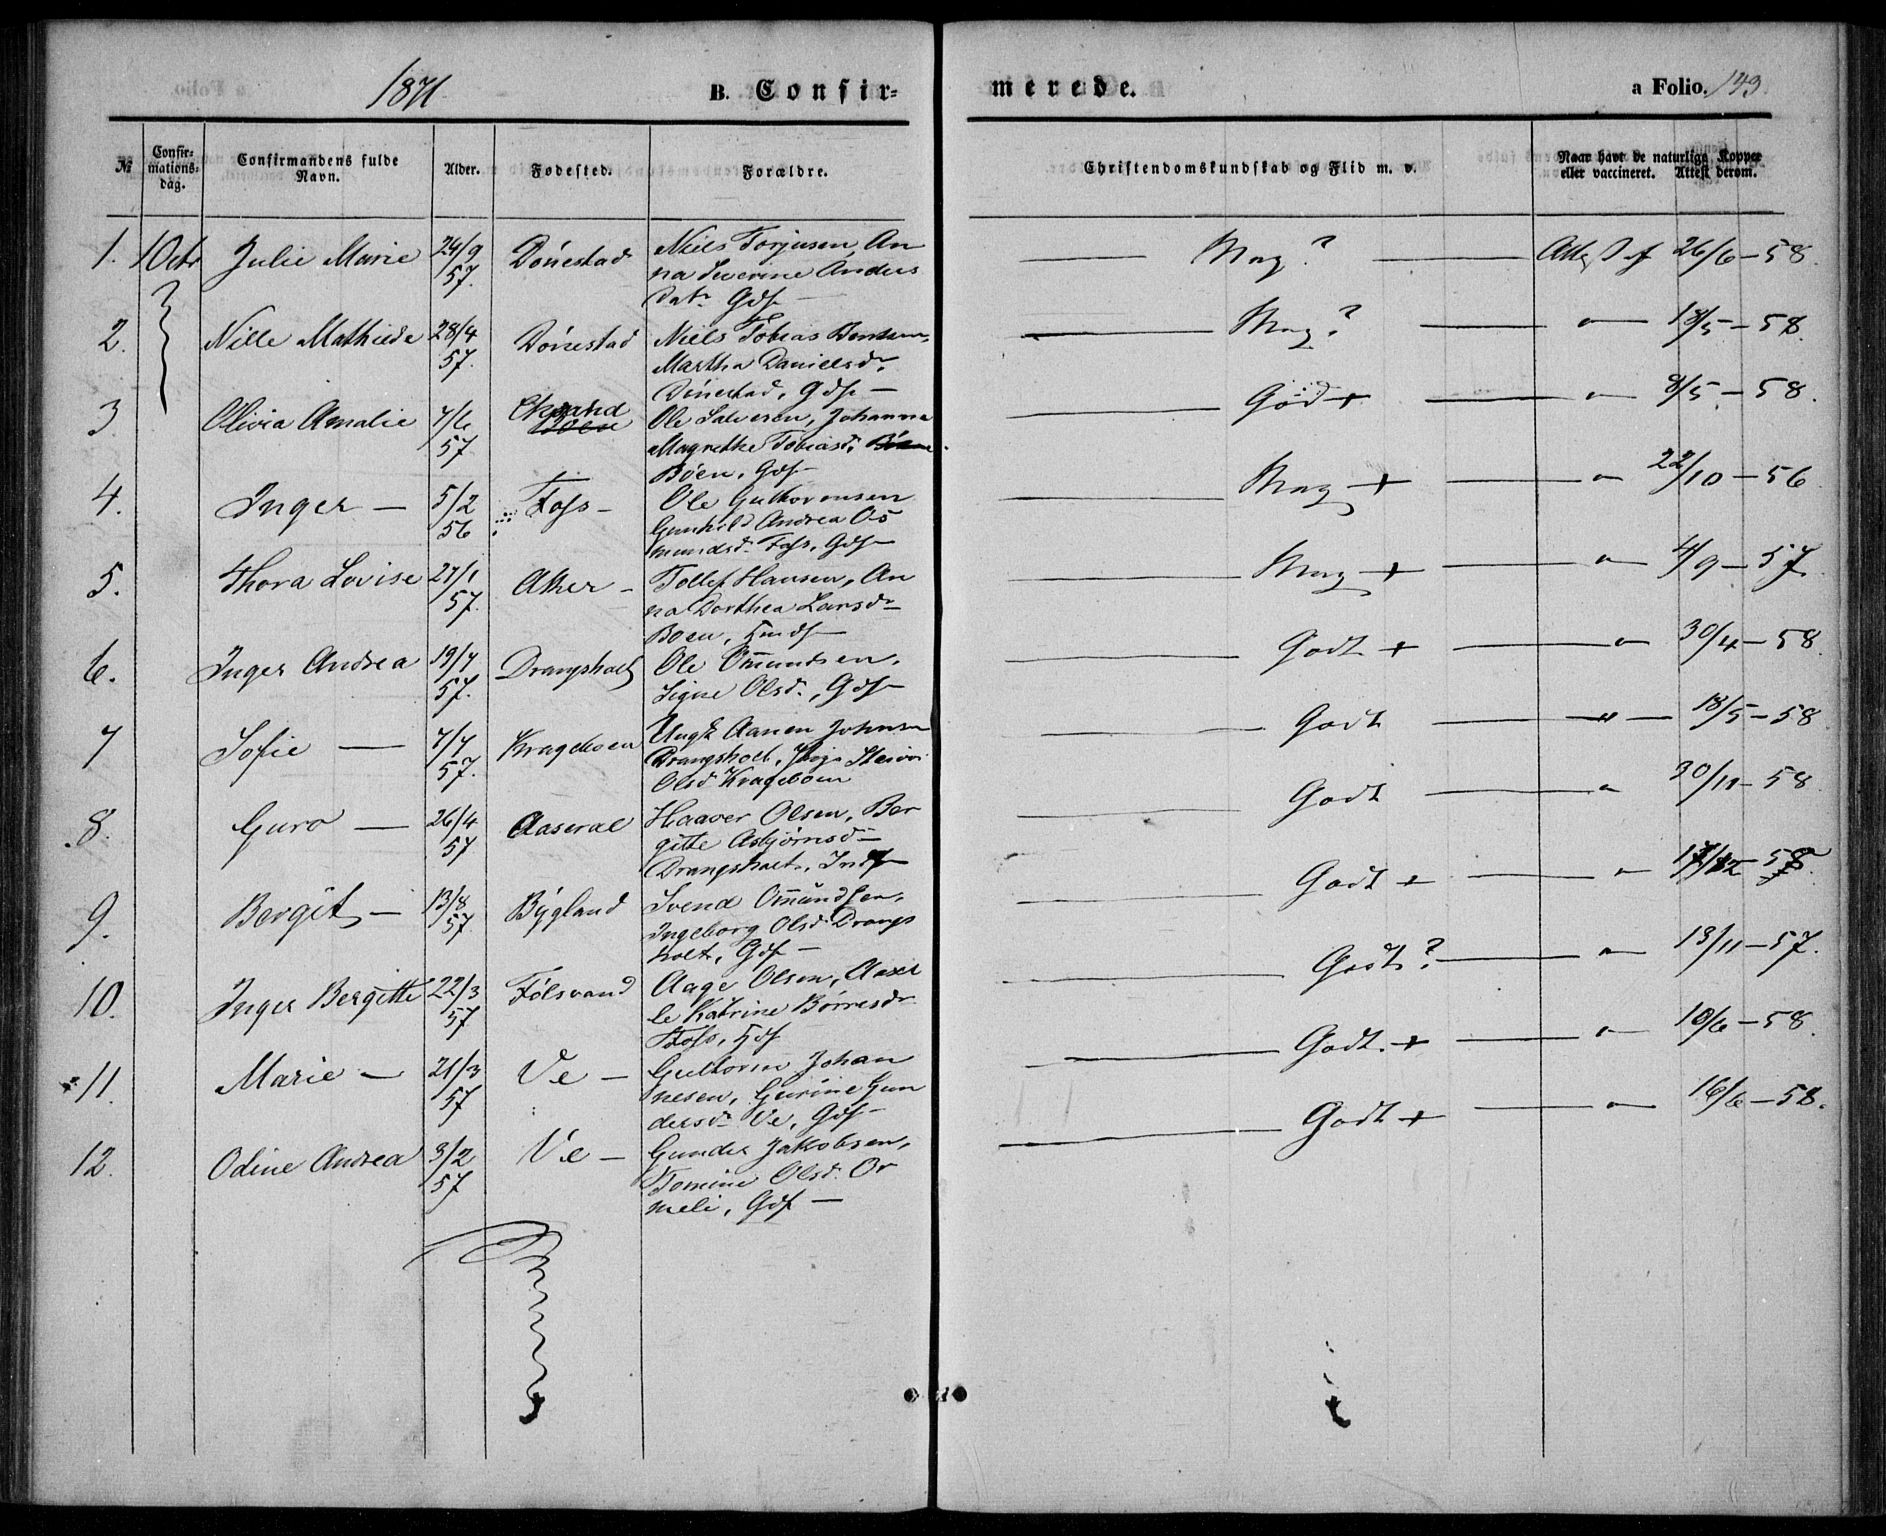 1871. B. Confir= merede. a Folio. 143
№ Confir=mations=dag. Confirmandens fulde Navn. Alder. Fødested. Forældre. Christendomskundskab og Flid m. v. Naar havt de naturlige Kopper eller vaccineret. Attest derom.
1. 1 Octr Julie Marie 24/9 57. Dønestad Niels Torjusen, An
na Severine Anders
datr Gdf — Mag? Attest af 26/6 – 58.
2. Nille Mathilde 28/4 57. Dønestad Niels Tobias
Martha Danielsdr
Dønestad, Gdf — Mag? — " — 18/5 – 58.
3 Olivia Amalie 7/6 57. Ole Salvesen, Johanna
Magrethe Tobiasd.
Bøen, Gdf — God + — " — 8/5 – 58.
4. Inger — 5/2 56 Foss — Ole Guthormsen
Gunhild Andrea Os
mundsd. Foss, Gdf — Mag + — " — 22/10 – 56
5. Thora Lovise 27/1 57. Aker — Tollef Hansen, An
na Dorthea Larsdr
Boen, Hmdf — Mag + — " — 4/9 – 57
6. Inger Andrea 19/7 57. Drangsholt Ole Omundsen,
Signe Olsd., Gdf — Godt + — " — 30/4 – 58.
7 Sofie — 7/7 57. Krageboen Ungk Aanen Johnsen
Drangsholt,
Olsd Krageboen Godt — " — 18/5 – 58
8. Guro — 26/4 57 Aaseral Haaver Olsen, Ber
gitte Asbjørnsd —
Drangsholt, Indf — Godt — " — 30/11 – 58
9. Bergit — 13/8 57 Bygland Svend Omundsen,
Ingeborg Olsd. Drangs
holt, Gdf — Godt + — " — 17/12 – 58.
10. Inger Bergitte 22/3 57 Følsvand Aage Olsen, Axel
le Katrine Børresdr
Foss, Gdf Godt? — " — 13/11 – 57.
11. Marie — 21/3 57 Ve — Guttorm Johan
nesen, Gurine Gun
dersdr Ve, Gdf — Godt. + — " — 10/6 – 58.
12. Odine Andrea 3/2 57 Ve — Gunder Jakobsen,
Tomine Olsd. Or
meli, Gdf — Godt + — " — 16/6 – 58.